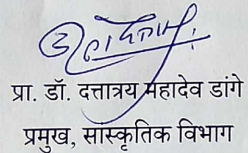 प्रा. डॉ. दत्तात्रय महादेव डांगे
प्रमुख, सांस्कृतिक विभाग